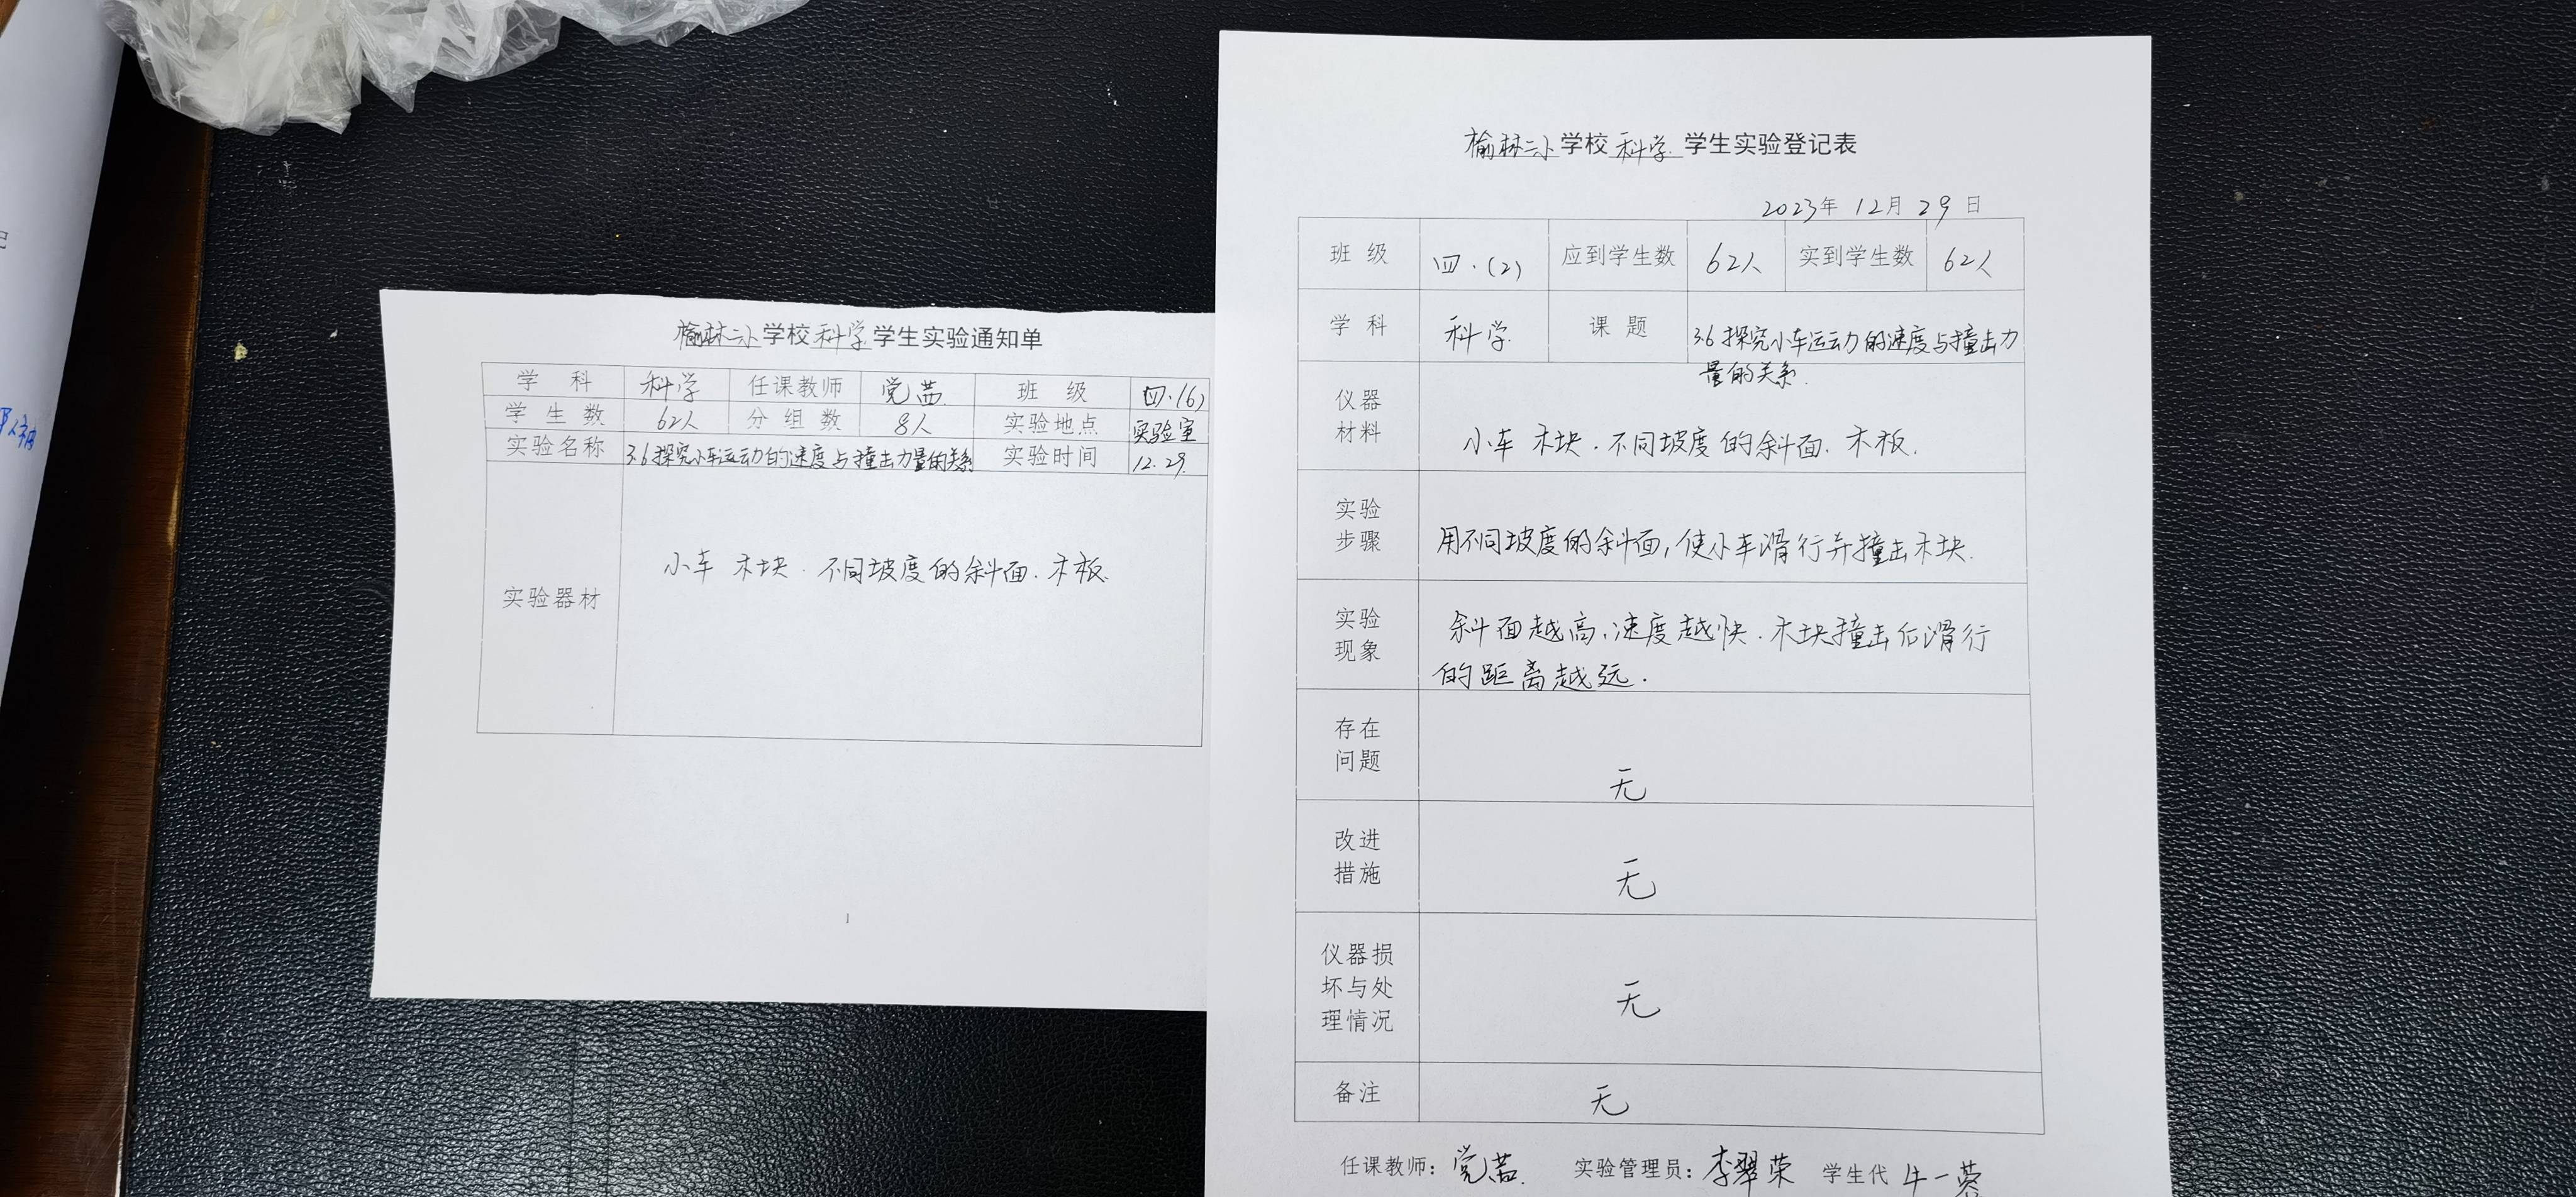 榆林二小学校科学学生实验通知单
学 科 科学 任课教师 党茜 班 级 四.(6)
学 生 数 62人 分 组 数 8人 实验地点 实验室
实验名称 3.6探究小车运动的速度与撞击力量的关系 实验时间 12.29.
实验器材 小车 木块. 不同坡度的斜面. 木板.
榆林二小学校科学学生实验登记表
2023年 12月 29 日
班 级 四.(2) 应到学生数 62人 实到学生数 62人
学 科 科学 课 题 3.6探究小车运动力的速度与撞击力
量的关系.
仪器
材料
小车 木块. 不同坡度的斜面. 木板.
实验
步骤
用不同坡度的斜面,使小车滑行并撞击木块.
实验
现象
斜面越高,速度越快.木块撞击后滑行
的距离越远.
存在
问题
无
改进
措施
无
仪器损
坏与处
理情况
无
备注 无
任课教师: 党茜. 实验管理员: 李翠荣 学生代 牛一蓉